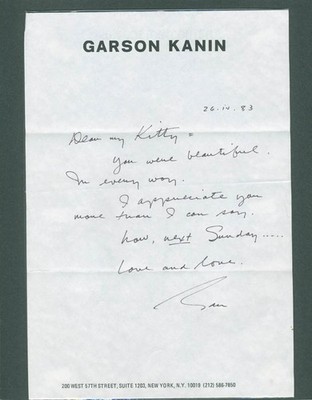 GARSON KANIN
26.IV.83
Dear my Kitty =
You were beautiful.
In every way.
I appreciate you
more than I can say.
Now, next Sunday.....
Love and love.
200 WEST 57TH STREET, SUITE 1203, NEW YORK, N.Y. 10019 (212) 586-7850